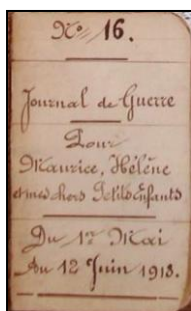 Nº 16.
Journal de Guerre
Pour
Maurice, Hélène
et mes chers Petits Enfants
Du 1er Mai
Au 12 Juin 1918.